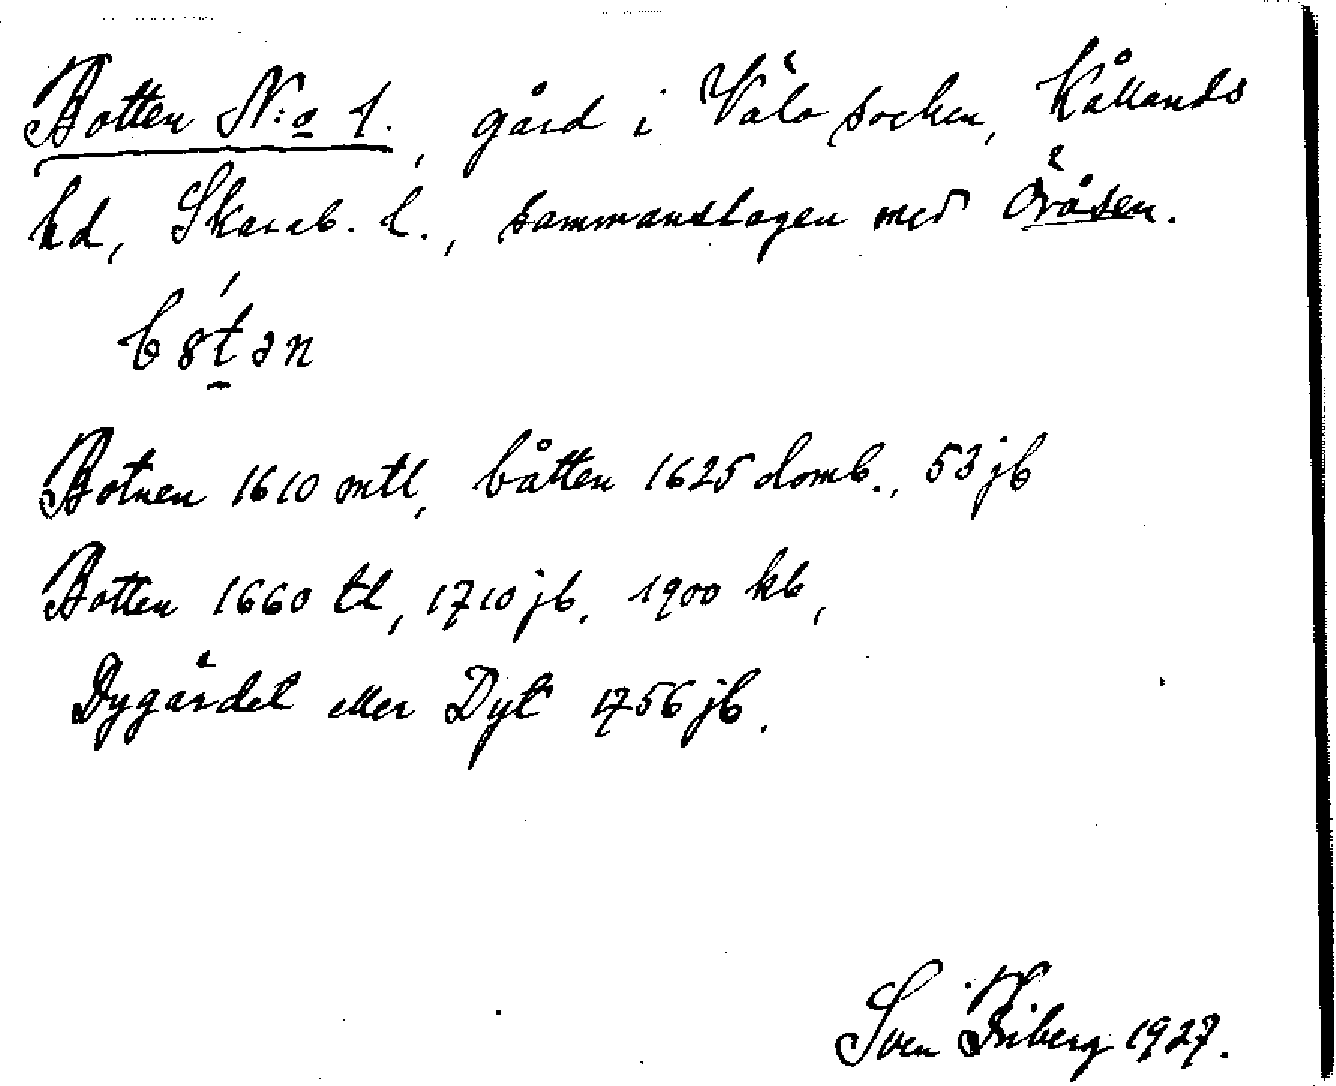 Botten N:o 1., gård i Väla socken, Kållands
hd, Skarab. l., sammanslagen med Öråsen.
b8t́ən
Botnen 1610 mtl, båtten 1625 domb., 53 jb
Botten 1660 tl, 1710 jb, 1900 kb,
Dygärdet eller Dyt 1756 jb.
Sven Friberg 1927.